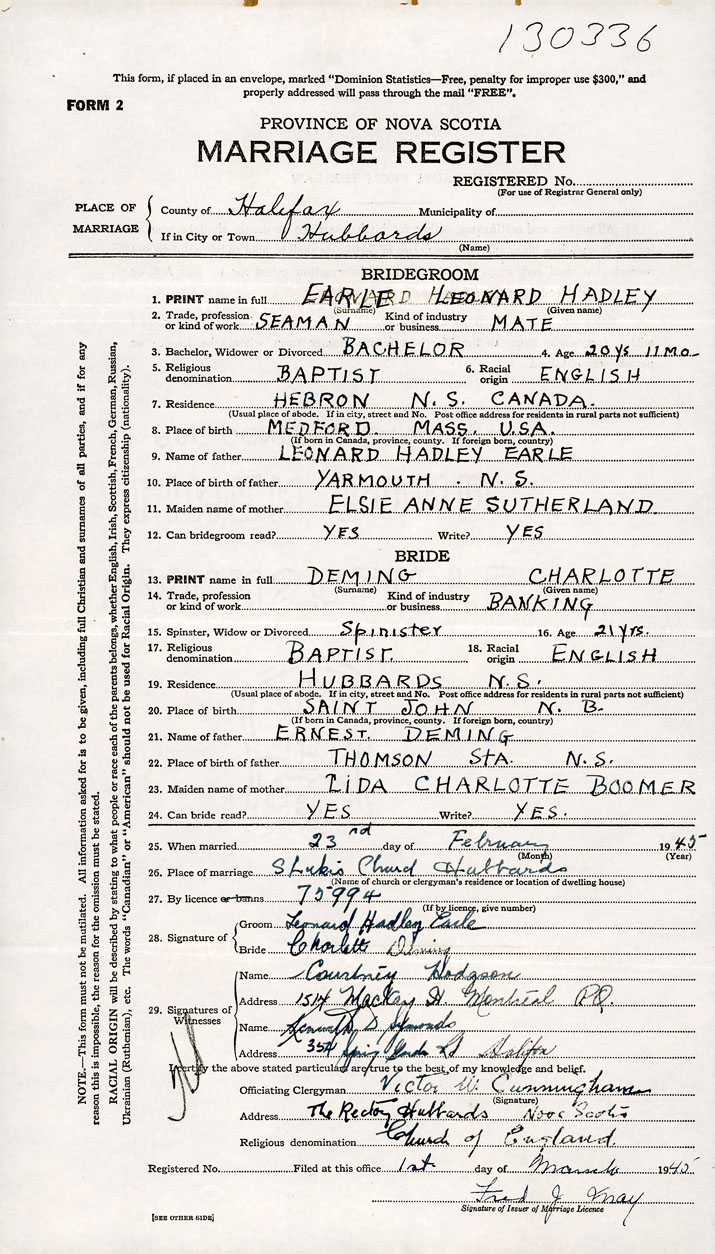 130336
This form, if placed in an envelope, marked "Dominion Statistics—Free, penalty for improper use $300," and
properly addressed will pass through the mail "FREE".
FORM 2
PROVINCE OF NOVA SCOTIA
MARRIAGE REGISTER
REGISTERED No.
(For use of Registrar General only)
PLACE OF MARRIAGE
County of Halifax Municipality of
If in City or Town Hubbards
(Name)
NOTE.—This form must not be mutilated. All information asked for is to be given, including full Christian and surnames of all parties, and if for any
reason this is impossible, the reason for the omission must be stated.
RACIAL ORIGIN will be described by stating to what people or race each of the parents belongs, whether English, Irish, Scottish, French, German, Russian,
Ukrainian (Ruthenian), etc. The words "Canadian" or "American" should not be used for Racial Origin. They express citizenship (nationality).
BRIDEGROOM
1. PRINT name in full EARLE LEONARD HADLEY
(Surname) (Given name)
2. Trade, profession or kind of work SEAMAN Kind of industry or business MATE
3. Bachelor, Widower or Divorced BACHELOR 4. Age 20 ys 11 MO.
5. Religious denomination BAPTIST 6. Racial origin ENGLISH
7. Residence HEBRON N.S. CANADA.
(Usual place of abode. If in city, street and No. Post office address for residents in rural parts not sufficient)
8. Place of birth MEDFORD. MASS. U.S.A.
(If born in Canada, province, county. If foreign born, country)
9. Name of father LEONARD HADLEY EARLE
10. Place of birth of father YARMOUTH . N.S.
11. Maiden name of mother ELSIE ANNE SUTHERLAND
12. Can bridegroom read? YES Write? YES
BRIDE
13. PRINT name in full DEMING CHARLOTTE
(Surname) (Given name)
14. Trade, profession or kind of work Kind of industry or business BANKING
15. Spinster, Widow or Divorced Spinister 16. Age 21 yrs.
17. Religious denomination BAPTIST. 18. Racial origin ENGLISH
19. Residence HUBBARDS N.S.
(Usual place of abode. If in city, street and No. Post office address for residents in rural parts not sufficient)
20. Place of birth SAINT JOHN N. B.
(If born in Canada, province, county. If foreign born, country)
21. Name of father ERNEST. DEMING
22. Place of birth of father THOMSON STA. N.S.
23. Maiden name of mother LIDA CHARLOTTE BOOMER
24. Can bride read? YES Write? YES.
25. When married 23nd day of February 1945
(Month) (Year)
26. Place of marriage St Lukes Church Hubbards
(Name of church or clergyman's residence or location of dwelling house)
27. By licence or banns 75994
(If by licence, give number)
28. Signature of
Groom Leonard Hadley Earle
Bride Charlotte Deming
29. Signatures of Witnesses
Name Courtney Hodgson
Address 1514 MacKay St Montreal P.Q.
Name Kenneth D Symonds
Address 354 Spring Garden Rd Halifax
I certify the above stated particulars are true to the best of my knowledge and belief.
Officiating Clergyman Victor W. Cunningham
(Signature)
Address The Rectory Hubbards Nova Scotia
Religious denomination Church of England
Registered No. Filed at this office 1st day of March 1945
Fred J.
Signature of Issuer of Marriage Licence
[SEE OTHER SIDE]